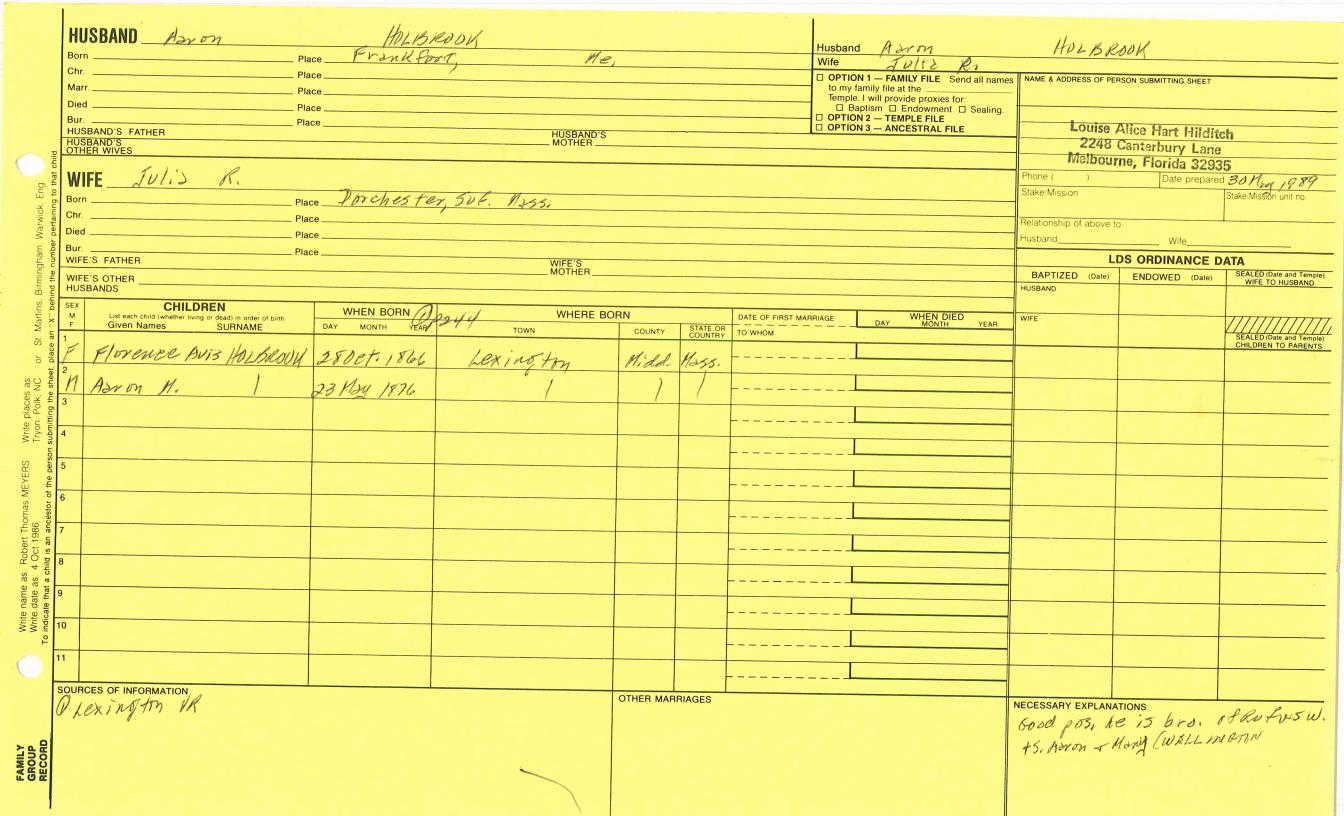 HUSBAND Aaron HOLBROOK
Born Place Frankfort, Me.
Chr. Place
Marr. Place
Died Place
Bur. Place
HUSBAND'S FATHER HUSBAND'S MOTHER
HUSBAND'S OTHER WIVES
WIFE Julia R.
Born Place Dorchester, Suf. Mass.
Chr. Place
Died Place
Bur. Place
WIFE'S FATHER WIFE'S MOTHER
WIFE'S OTHER HUSBANDS
Husband Aaron HOLBROOK
Wife Julia R.
☐ OPTION 1 — FAMILY FILE Send all names
to my family file at the
Temple. I will provide proxies for:
☐ Baptism ☐ Endowment ☐ Sealing.
☐ OPTION 2 — TEMPLE FILE
☐ OPTION 3 — ANCESTRAL FILE
NAME & ADDRESS OF PERSON SUBMITTING SHEET
Louise Alice Hart Hilditch
2248 Canterbury Lane
Melbourne, Florida 32935
Phone ( ) Date prepared 30 May 1989
Stake/Mission Stake/Mission unit no.
Relationship of above to:
Husband Wife
LDS ORDINANCE DATA
BAPTIZED (Date) ENDOWED (Date) SEALED (Date and Temple) WIFE TO HUSBAND
HUSBAND
WIFE
SEALED (Date and Temple) CHILDREN TO PARENTS
SEX M F
CHILDREN
List each child (whether living or dead) in order of birth
Given Names SURNAME
WHEN BORN p244
DAY MONTH YEAR
WHERE BORN
TOWN COUNTY STATE OR COUNTRY
DATE OF FIRST MARRIAGE
TO WHOM
WHEN DIED
DAY MONTH YEAR
1 F Florence Avis HOLBROOK 28 Oct. 1866 Lexington Midd. Mass.
2 M Aaron M. 23 May 1876
3
4
5
6
7
8
9
10
11
SOURCES OF INFORMATION
① Lexington VR
OTHER MARRIAGES
NECESSARY EXPLANATIONS
Good pos. he is bro. of Rufus W.
+ S. Aaron + Mary (WALLINGTON
Write name as: Robert Thomas MEYERS Write places as: Tryon, Polk, NC or St. Martins, Birmingham, Warwick, Eng.
Write date as: 4 Oct 1986
To indicate that a child is an ancestor of the person submitting the sheet, place an "X" behind the number pertaining to that child.
FAMILY
GROUP
RECORD